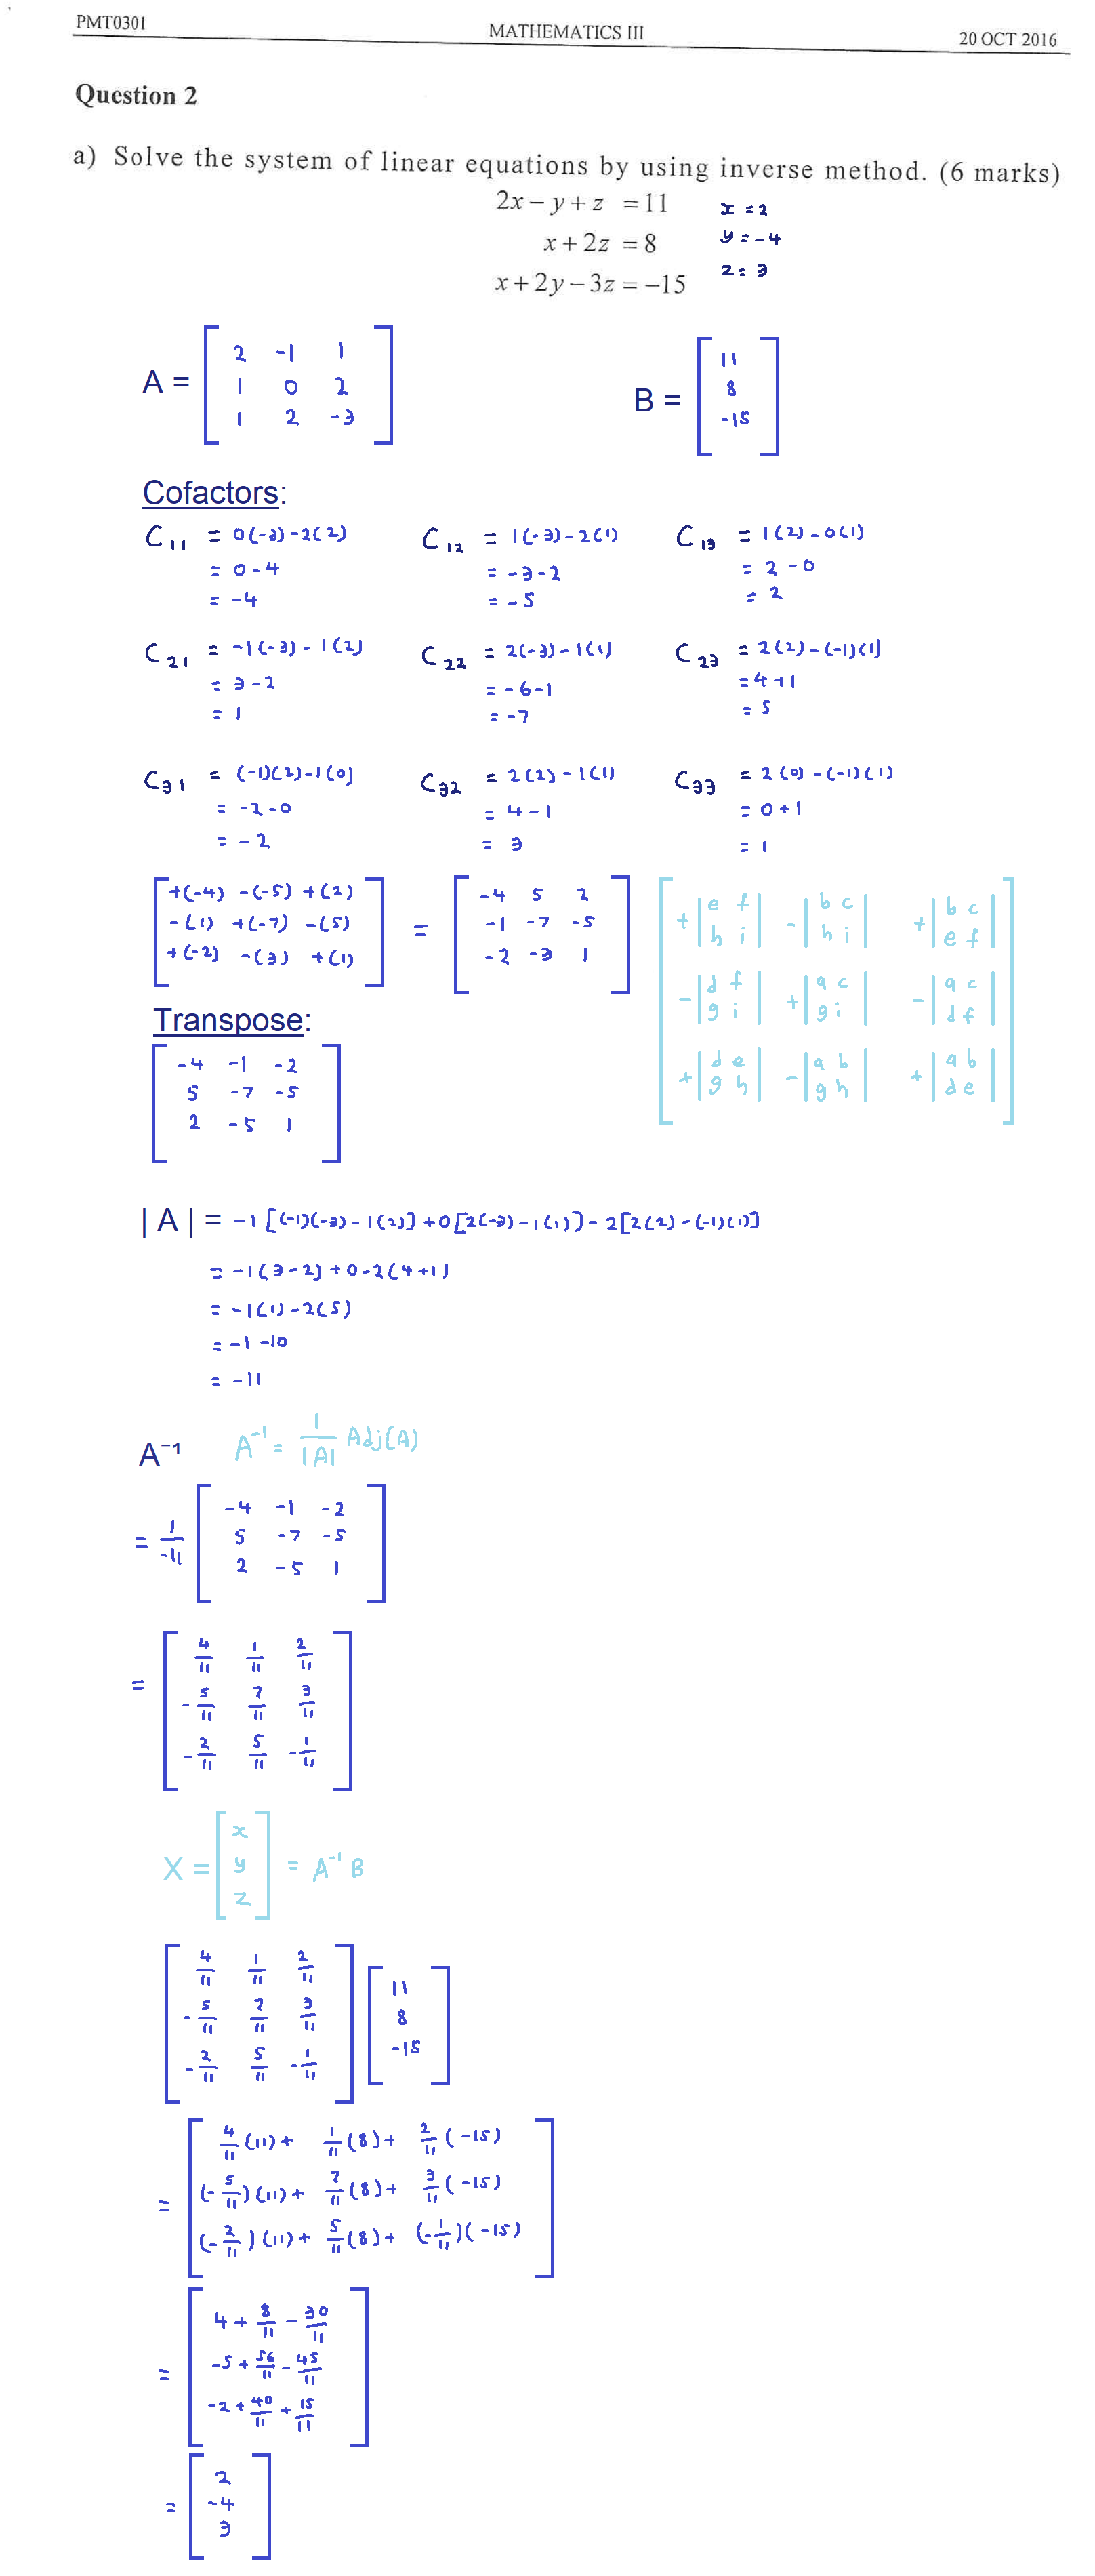 PMT0301 MATHEMATICS III 20 OCT 2016
Question 2
a) Solve the system of linear equations by using inverse method. (6 marks)
2x − y + z = 11 x = 2
x + 2z = 8 y = -4
x + 2y − 3z = −15 z = 3
A = [ 2 -1 1 B = [ 11
1 0 2 8
1 2 -3 ] -15 ]
Cofactors:
C11 = 0(-3)-2(2) C12 = 1(-3)-2(1) C13 = 1(2)-0(1)
= 0-4 = -3-2 = 2-0
= -4 = -5 = 2
C21 = -1(-3)-1(2) C22 = 2(-3)-1(1) C23 = 2(2)-(-1)(1)
= 3-2 = -6-1 = 4+1
= 1 = -7 = 5
C31 = (-1)(2)-1(0) C32 = 2(2)-1(1) C33 = 2(0)-(-1)(1)
= -2-0 = 4-1 = 0+1
= -2 = 3 = 1
[ +(-4) -(-5) +(2) = [ -4 5 2
-(1) +(-7) -(5) -1 -7 -5
+(-2) -(3) +(1) ] -2 -3 1 ]
+|e f -|b c +|b c
h i| h i| e f|
-|d f +|a c -|a c
g i| g i| d f|
+|d e -|a b +|a b
g h| g h| d e|
Transpose:
[ -4 -1 -2
5 -7 -5
2 -5 1 ]
| A | = -1[(-1)(-3)-1(2)]+0[2(-3)-1(1)]-2[2(2)-(-1)(1)]
= -1(3-2)+0-2(4+1)
= -1(1)-2(5)
= -1-10
= -11
A⁻¹ A⁻¹ = 1/|A| Adj(A)
= 1/-11 [ -4 -1 -2
5 -7 -5
2 -5 1 ]
= [ 4/11 1/11 2/11
-5/11 7/11 3/11
-2/11 5/11 -1/11 ]
X = [ x
y = A⁻¹ B
z ]
[ 4/11 1/11 2/11 [ 11
-5/11 7/11 3/11 8
-2/11 5/11 -1/11 ] -15 ]
= [ 4/11(11)+ 1/11(8)+ 2/11(-15)
(-5/11)(11)+ 7/11(8)+ 3/11(-15)
(-2/11)(11)+ 5/11(8)+ (-1/11)(-15) ]
= [ 4+8/11-30/11
-5+56/11-45/11
-2+40/11+15/11 ]
= [ 2
-4
3 ]